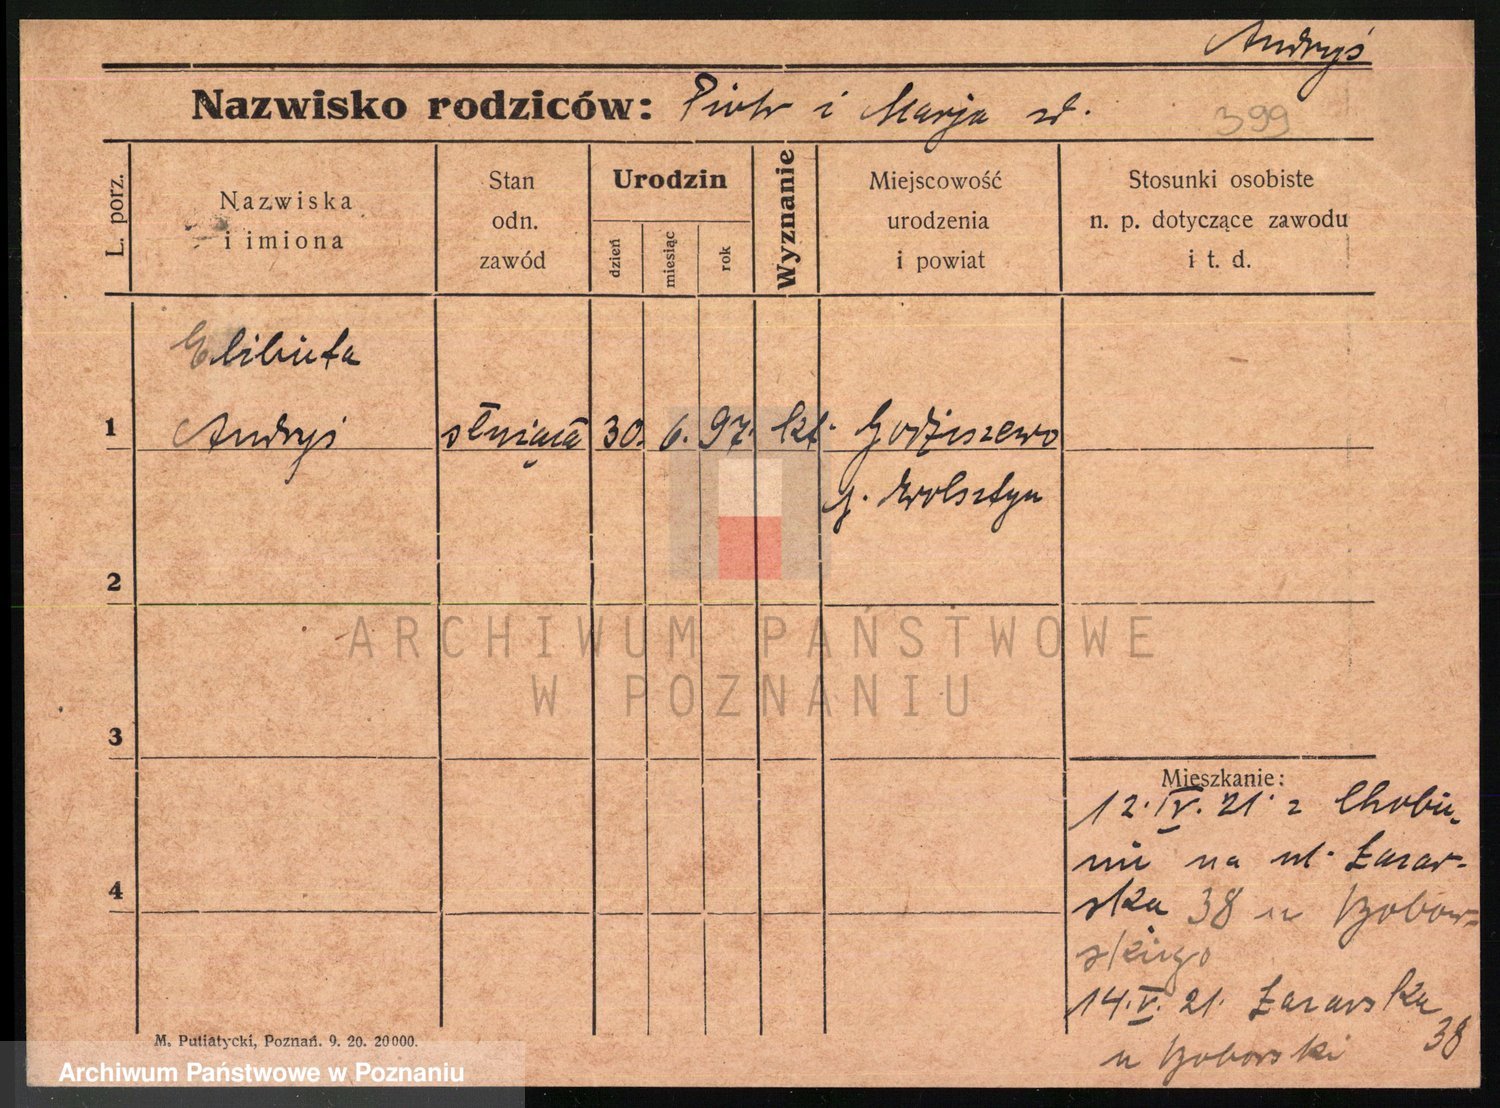 Andryś
Nazwisko rodziców: Piotr i Marja
399
L. porz.
Nazwiska
i imiona
Stan
odn.
zawód
Urodzin
dzień
miesiąc
rok
Wyznanie
Miejscowość
urodzenia
i powiat
Stosunki osobiste
n. p. dotyczące zawodu
i t. d.
Elżbieta
1 Andryś służąca 30. 6. 97. kt. Godziszewo
p. Wolsztyn
2
ARCHIWUM PAŃSTWOWE
W POZNANIU
3
Mieszkanie:
12.IV.21. z Chobie-
nic na ul. Łazar-
4
ska 38 u
14.V.21. Łazarska
38
u
M. Putiatycki, Poznań. 9. 20. 20000.
Archiwum Państwowe w Poznaniu